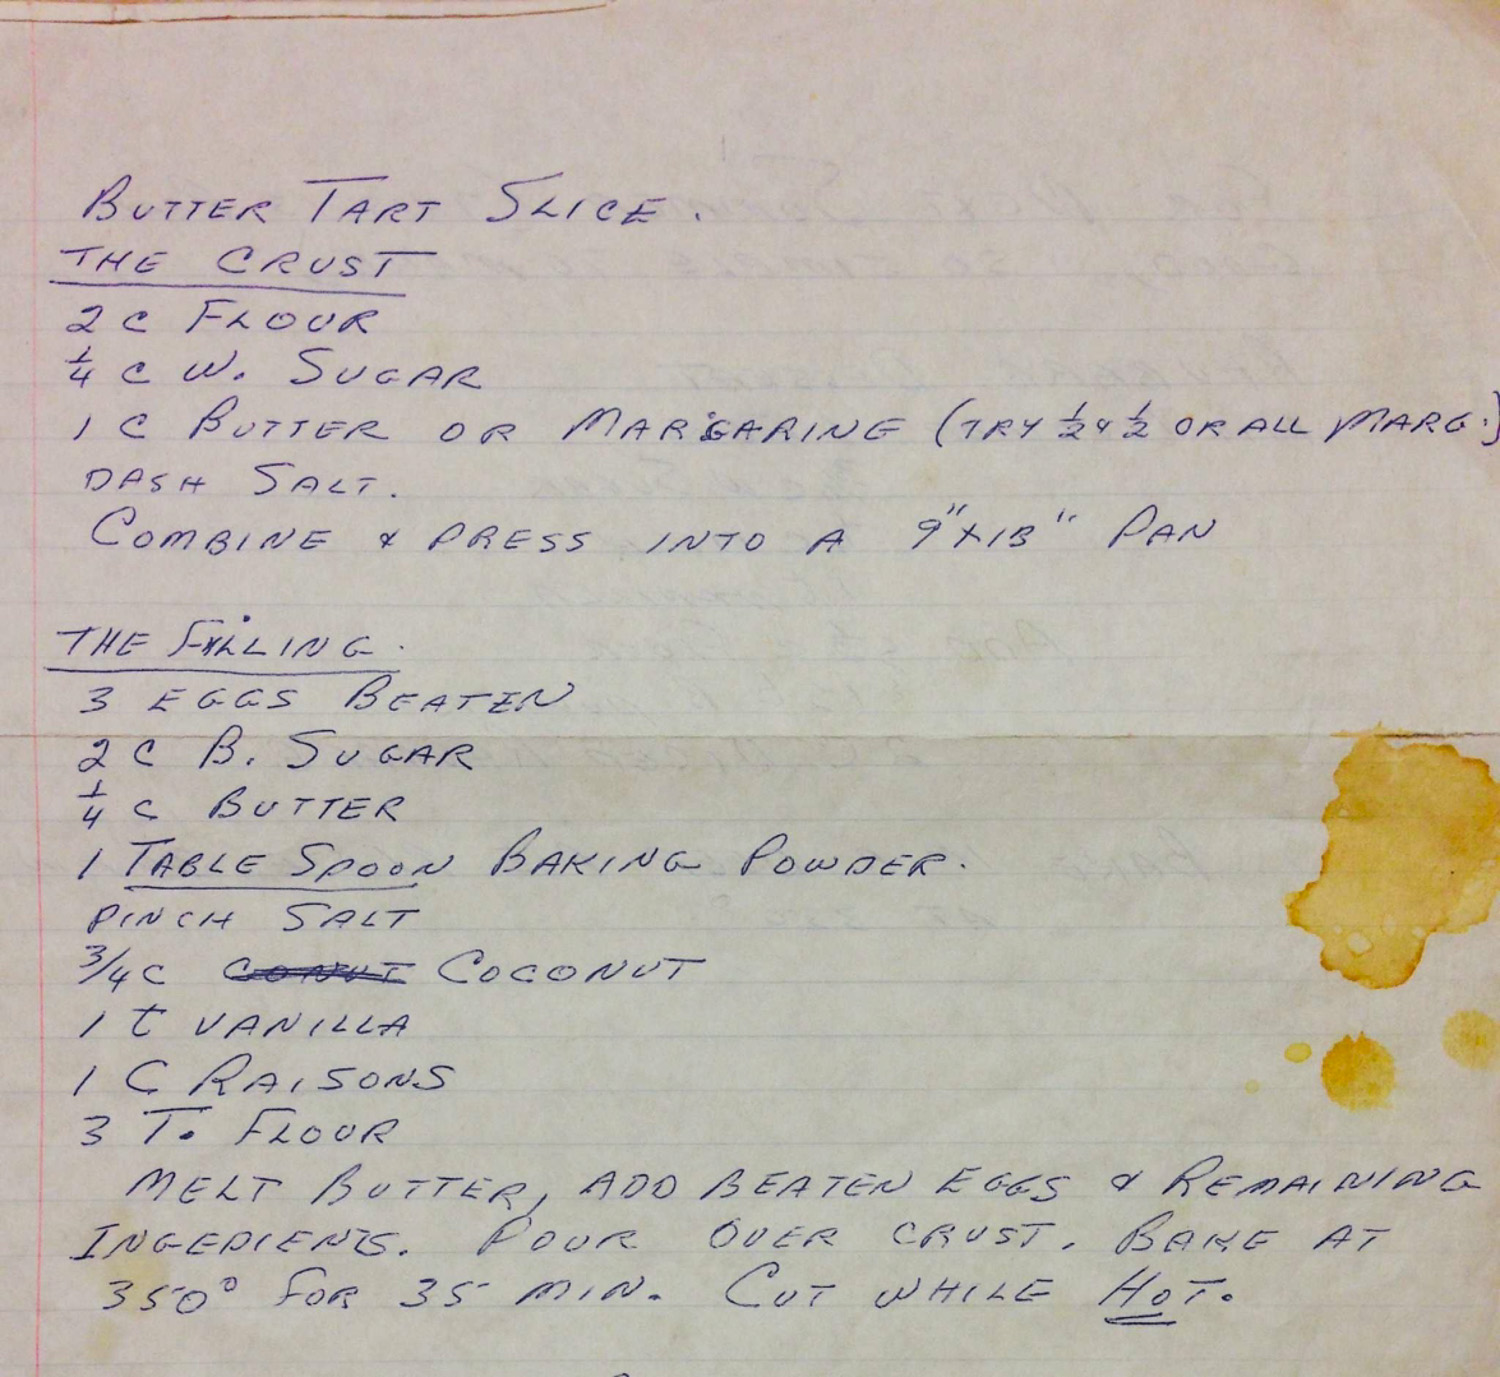 BUTTER TART SLICE.
THE CRUST
2 C FLOUR
1/4 C W. SUGAR
1 C BUTTER OR MARGARINE (TRY 1/2 & 1/2 OR ALL MARG.)
DASH SALT.
COMBINE & PRESS INTO A 9"X13" PAN
THE FILLING.
3 EGGS BEATEN
2 C B. SUGAR
1/4 C BUTTER
1 TABLE SPOON BAKING POWDER.
PINCH SALT
3/4 C COCONUT
1 t VANILLA
1 C RAISONS
3 T. FLOUR
MELT BUTTER, ADD BEATEN EGGS & REMAINING
INGEDIENTS. POUR OVER CRUST. BAKE AT
350° FOR 35 MIN. CUT WHILE HOT.